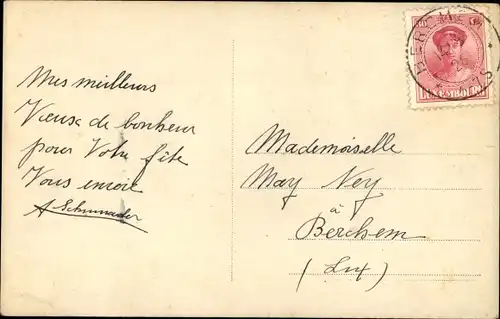 Mes meilleurs
Voeux de bonheur
pour Votre fête
Vous envoie
A Schumacher
Mademoiselle
May Ney
à
Berchem
(Lux)
LUXEMBOURG
BERCHEM